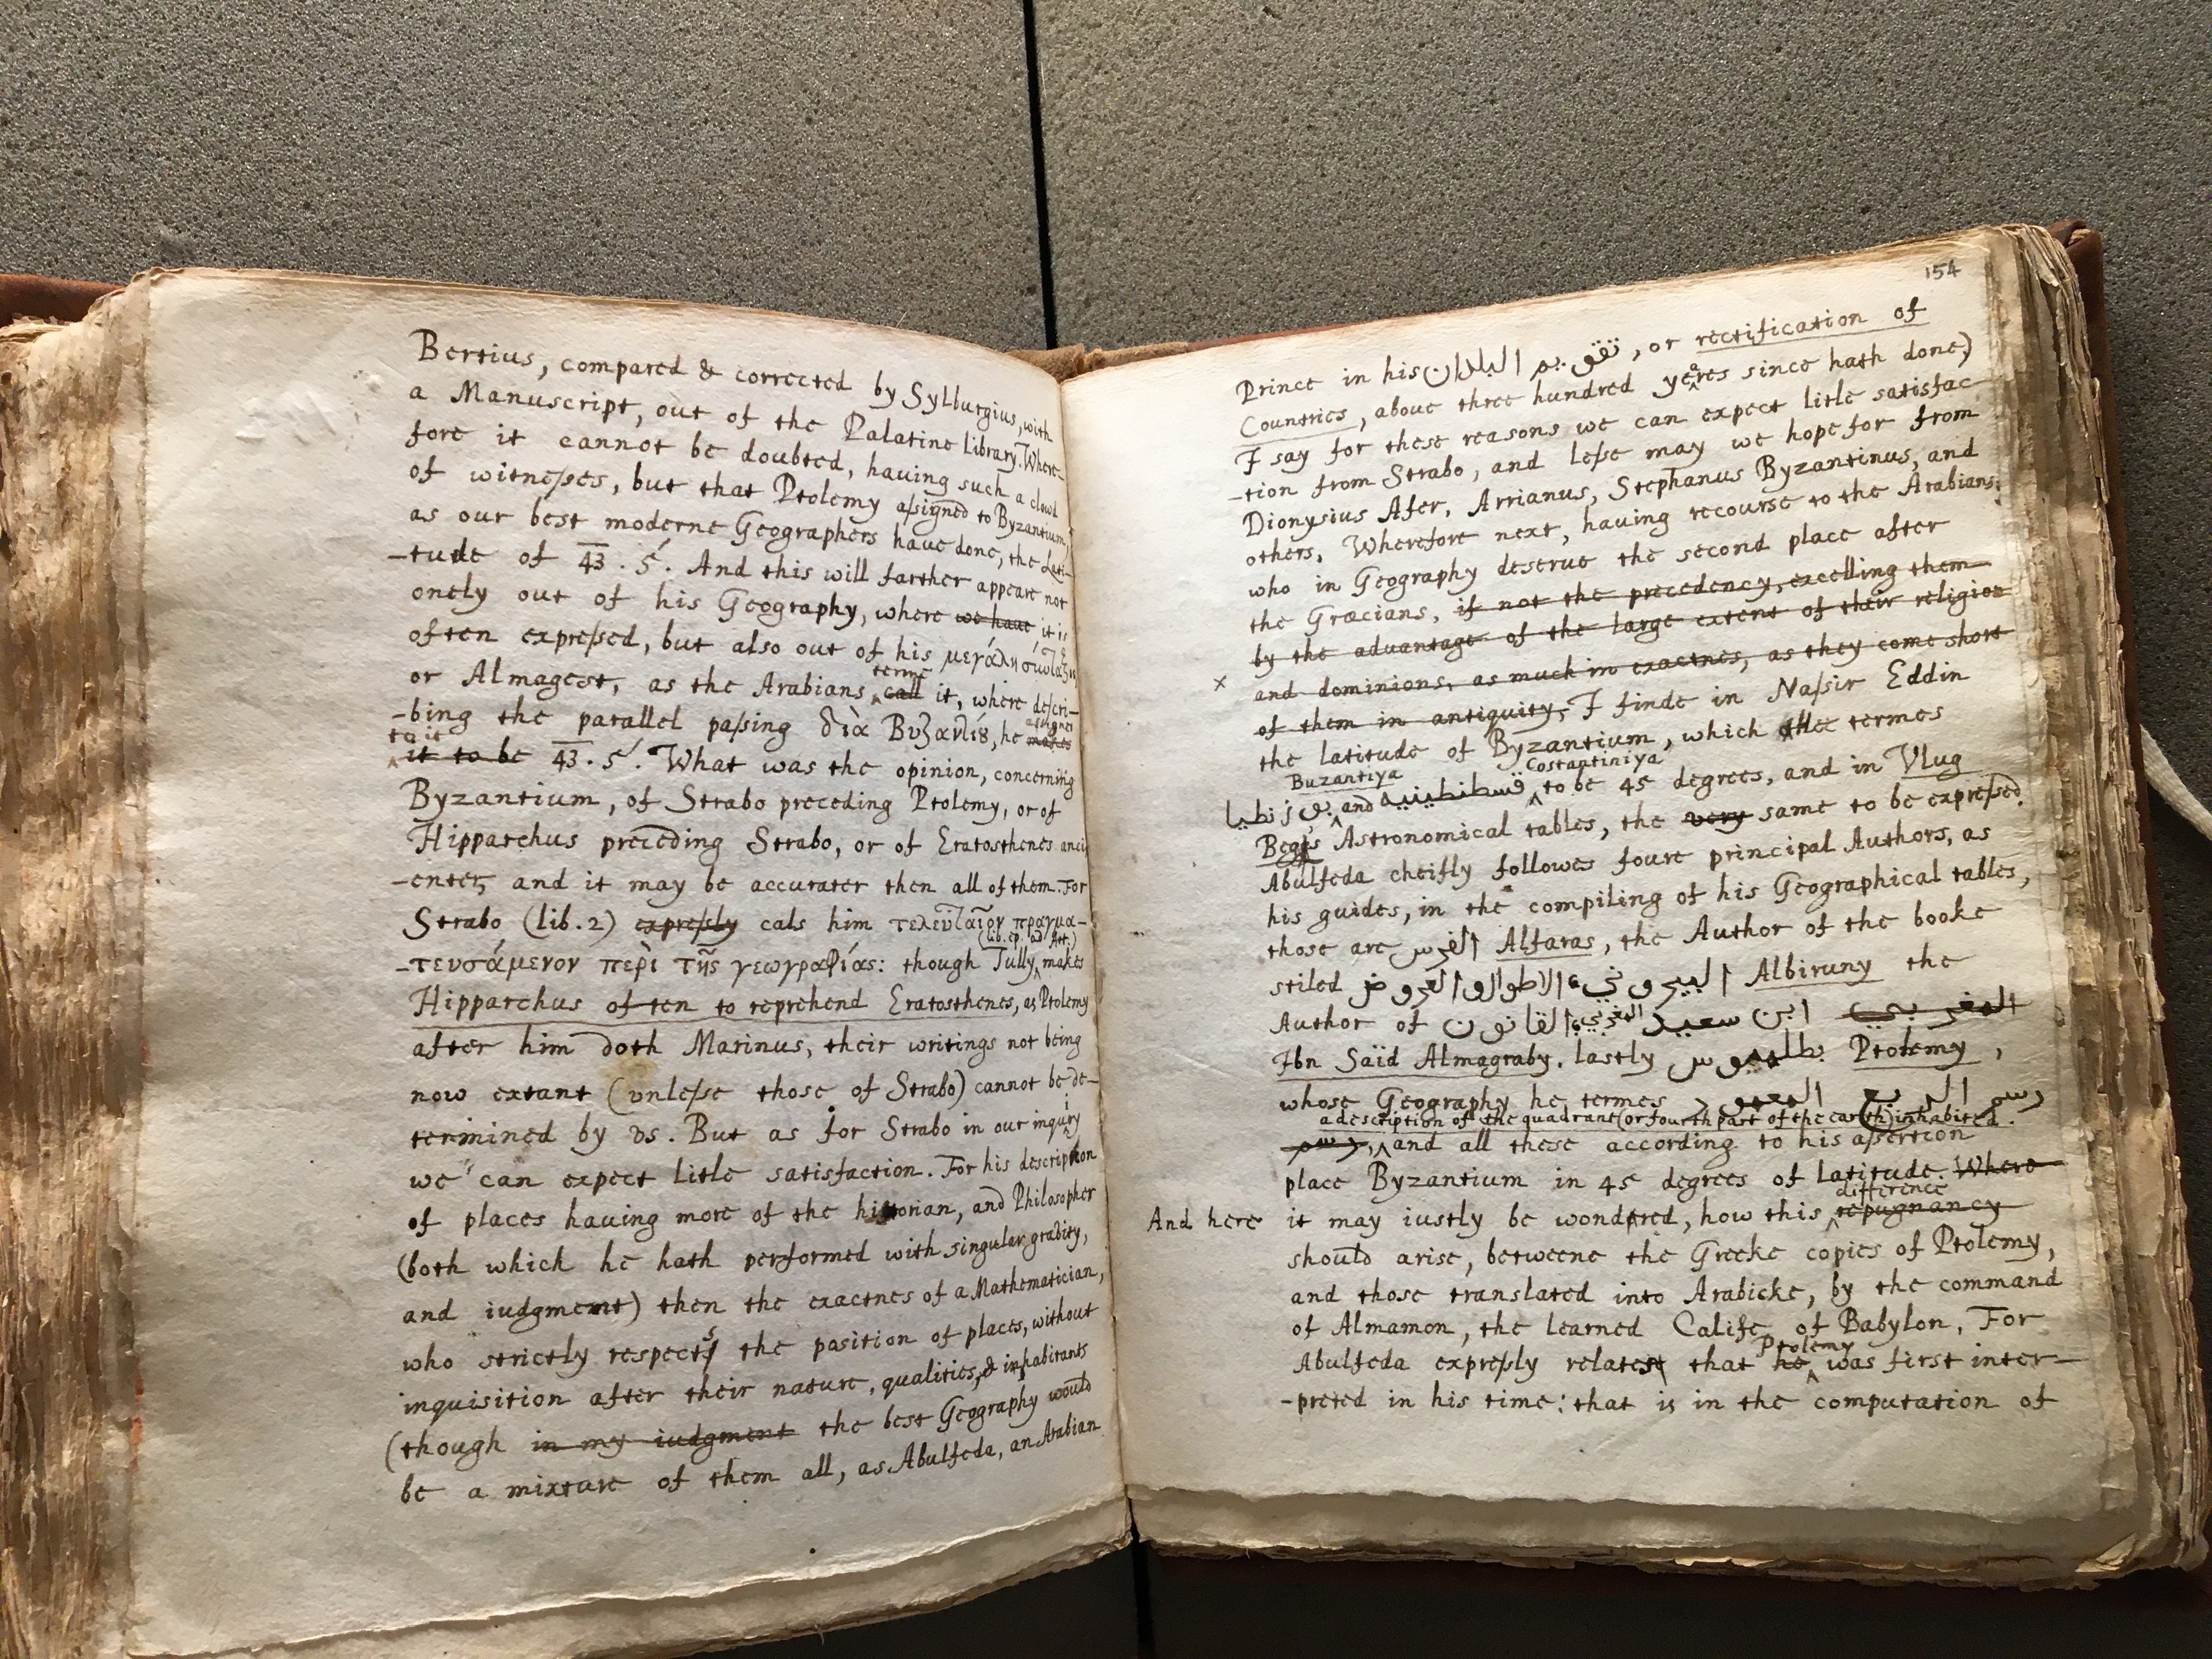 Bertius, compared & corrected by Sylburgius, with
a Manuscript, out of the Palatine Library. Where-
fore it cannot be doubted, having such a cloud
of witnesses, but that Ptolemy assigned to Byzantium,
as our best moderne Geographers have done, the Lati-
-tude of 43. 5'. And this will farther appeare not
onely out of his Geography, where we have it is
often expressed, but also out of his μεγάλη σύνταξις
or Almagest, as the Arabians call it, where descri-
terme
-bing the parallel passing διὰ Βυζαντίȣ, he makes
assignes
to it
it to be 43. 5'. What was the opinion, concerning
Byzantium, of Strabo preceding Ptolemy, or of
Hipparchus preceding Strabo, or of Eratosthenes anci-
-enter, and it may be accurater then all of them. For
Strabo (lib. 2) expressly cals him τελευταῖον πραγμα-
(lib. ep. ad Att.)
-τευσάμενον περὶ τῆς γεωγραφίας: though Tully makes
Hipparchus often to reprehend Eratosthenes, as Ptolemy
after him doth Marinus, their writings not being
now extant (unlesse those of Strabo) cannot be de-
termined by vs. But as for Strabo in our inquiry
we can expect litle satisfaction. For his description
of places having more of the historian, and Philosopher
(both which he hath performed with singular gravity,
and iudgment) then the exactnes of a Mathematician,
who strictly respects the position of places, without
inquisition after their nature, qualities, & inhabitants
(though in my iudgment the best Geography would
be a mixture of them all, as Abulfeda, an Arabian
154
Prince in his تقويم البلدان, or rectification of
Countries, above three hundred yeares since hath done)
I say for these reasons we can expect litle satisfac-
-tion from Strabo, and lesse may we hope for from
Dionysius Afer, Arrianus, Stephanus Byzantinus, and
others. Wherefore next, having recourse to the Arabians,
who in Geography deserve the second place after
the Græcians, if not the precedency, excelling them
by the advantage of the large extent of their religion
x and dominions, as much in exactnes, as they come short
of them in antiquity, I finde in Nassir Eddin
the latitude of Byzantium, which hee termes
Buzantiya Costantiniya
بوزنطيا and قسطنطينية to be 45 degrees, and in Vlug
Begs Astronomical tables, the very same to be expressed.
Abulfeda cheifly followes foure principal Authors, as
his guides, in the compiling of his Geographical tables,
those are الفرس Alfaras, the Author of the booke
stiled الاطوال والعروض البيروني Albiruny the
Author of القانون ابن سعيد المغربي المغربي
Ibn Saïd Almagraby. lastly بطلميوس Ptolemy,
whose Geography he termes رسم الربع المعمور
a description of the quadrant (or fourth part of the earth) inhabited.
رسم, and all these according to his assertion
place Byzantium in 45 degrees of latitude. Where
difference
And here it may iustly be wondred, how this repugnancy
should arise, betweene the Greeke copies of Ptolemy,
and those translated into Arabicke, by the command
of Almamon, the learned Calife of Babylon. For
Ptolemy
Abulfeda expressly relates that he was first inter-
-preted in his time: that is in the computation of